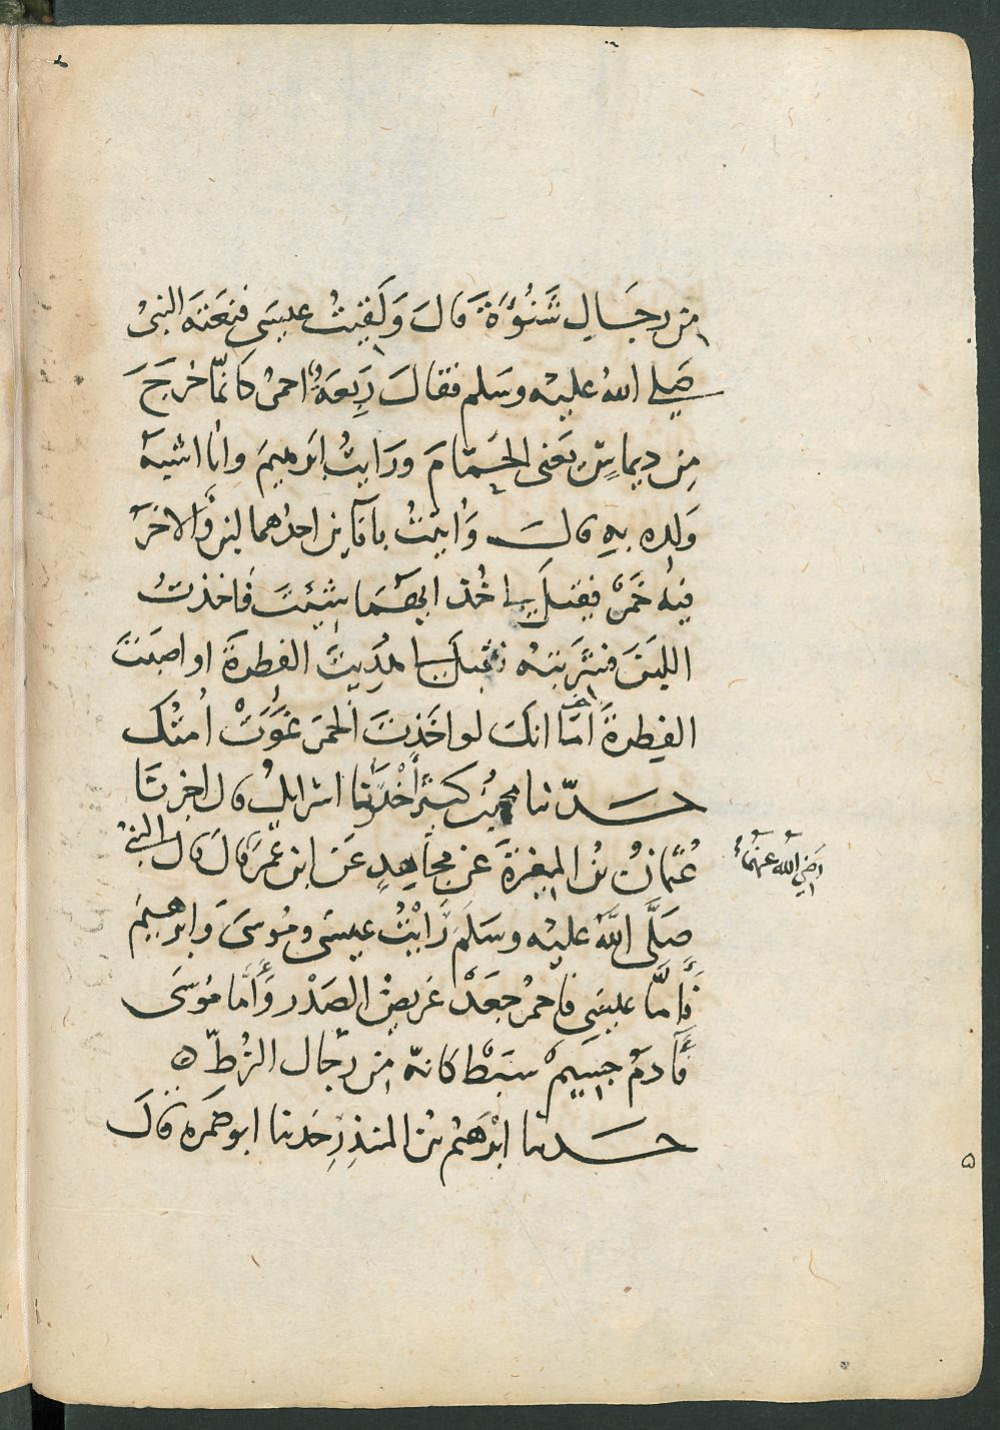 من رجال شَنُوءَةَ قال وَلَقِيتُ عيسَى فنَعَتَهُ النبىُّ
صَلى اللهُ عليْه وسَلم فقالَ رَبعَةٌ احمرُ كانمّا خرَجَ
مِن ديماسٍ يَعنى الحَمّامَ ورَايتُ ابرَهيمَ وانا اشبهُ
وَلدِه بهِ قالَ وَأُتيتُ باناءَين احدُهما لبن وَالاخرُ
فيْه خَمْرٌ فقيلَ لى خُذ ايّهمَا شِئتَ فَاخذتُ
اللبَنَ فشَربتهُ فقيلَ لى هُدِيتَ الفطرَةَ او اصَبتَ
الفِطرةَ امَا انكَ لو اخَذتَ الخمرَ غوَتْ اُمتُك
حَدّثنا محمد بن كثير أخْبَرَنا اسرايلُ قال اخبرنا
عُثمانُ بنُ المغيرَةِ عَن مجَاهِدٍ عَن ابن عُمَرَ قالَ قال النبىُّ
رَضِيَ الله عنهُمَا
صَلَّى اللَّهُ عليْه وسَلمَ رَأيْتُ عيسَى ومُوسَى وَابرهيمَ
فَأمَّا عيسَى فَاحمرُ جعَدْ عَريضُ الصَدْر وَأمَّا مُوسَى
فَآدمُ جسِيمٌ سَبْطٌ كانهّ من رجَال الزُطّ ه
حَدثنا ابْرَهيمُ بْنُ المنذِرِ حَدثنا ابو ضمره قالَ